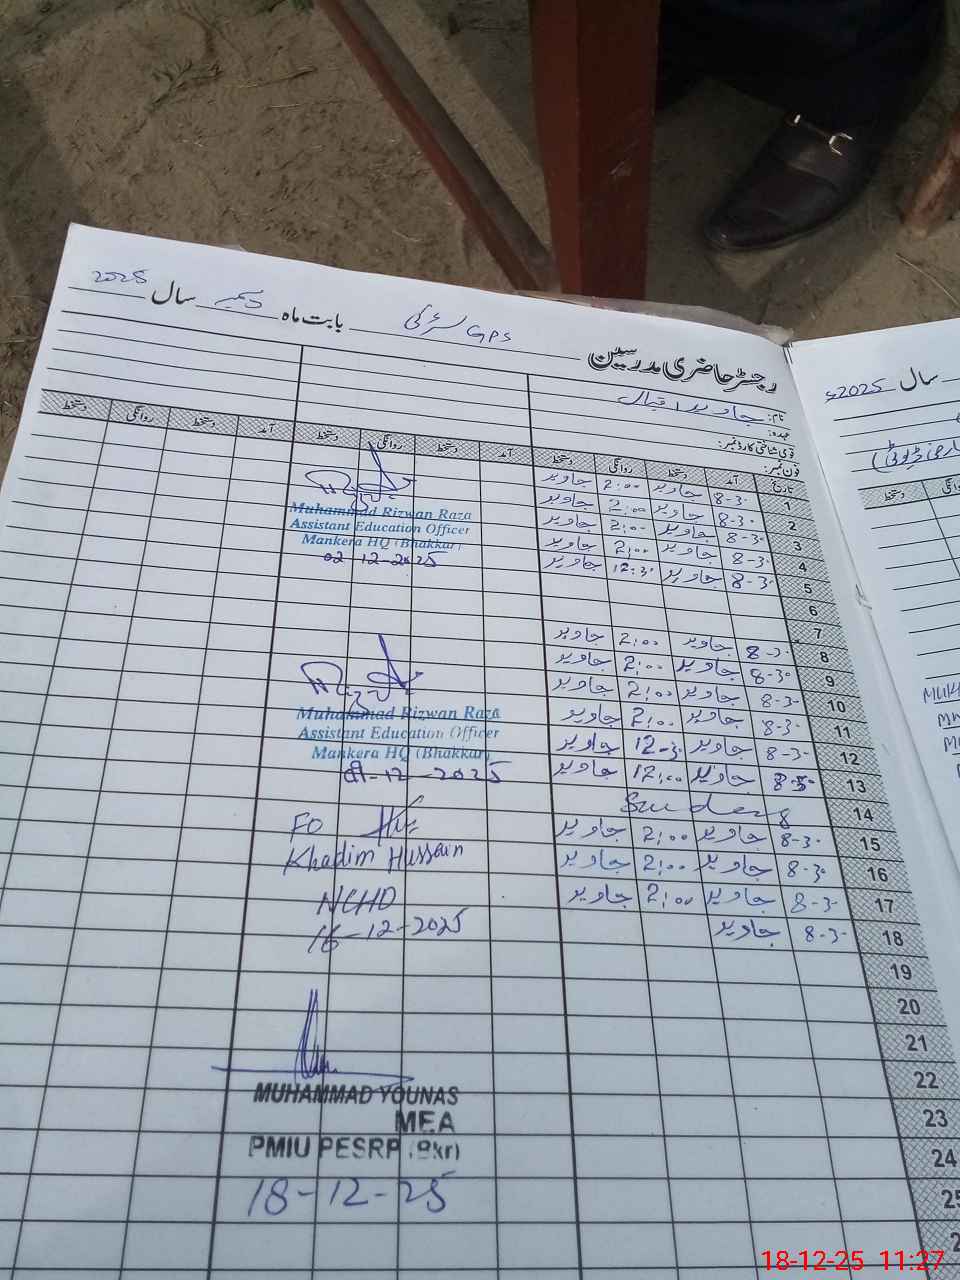 رجسٹر حاضری مدرسین GPS سرگی بابت ماہ دسمبر سال 2025
نام: جاوید اقبال
عہدہ:
قومی شناختی کارڈ نمبر:
فون نمبر:
تاریخ آمد دستخط روانگی دستخط آمد دستخط روانگی دستخط آمد دستخط روانگی دستخط
1 8-30 جاوید 2:00 جاوید
2 8-30 جاوید 2:00 جاوید
3 8-30 جاوید 2:00 جاوید
4 8-30 جاوید 2:00 جاوید
5 8-30 جاوید 12:30 جاوید
6
7
8 8-30 جاوید 2:00 جاوید
9 8-30 جاوید 2:00 جاوید
10 8-30 جاوید 2:00 جاوید
11 8-30 جاوید 2:00 جاوید
12 8-30 جاوید 12-30 جاوید
13 8-30 جاوید 12:00 جاوید
14 Sunday
15 8-30 جاوید 2:00 جاوید
16 8-30 جاوید 2:00 جاوید
17 8-30 جاوید 2:00 جاوید
18 8-30 جاوید
19
20
21
22
23
24
25
Muhammad Rizwan Raza
Assistant Education Officer
Mankera HQ (Bhakkar)
02-12-2025
Muhammad Rizwan Raza
Assistant Education Officer
Mankera HQ (Bhakkar)
09-12-2025
FO
Khadim Hussain
NCHD
16-12-2025
MUHAMMAD YOUNAS
MEA
PMIU PESRP (Bkr)
18-12-25
سال 2025ء
دستخط
18-12-25 11:27